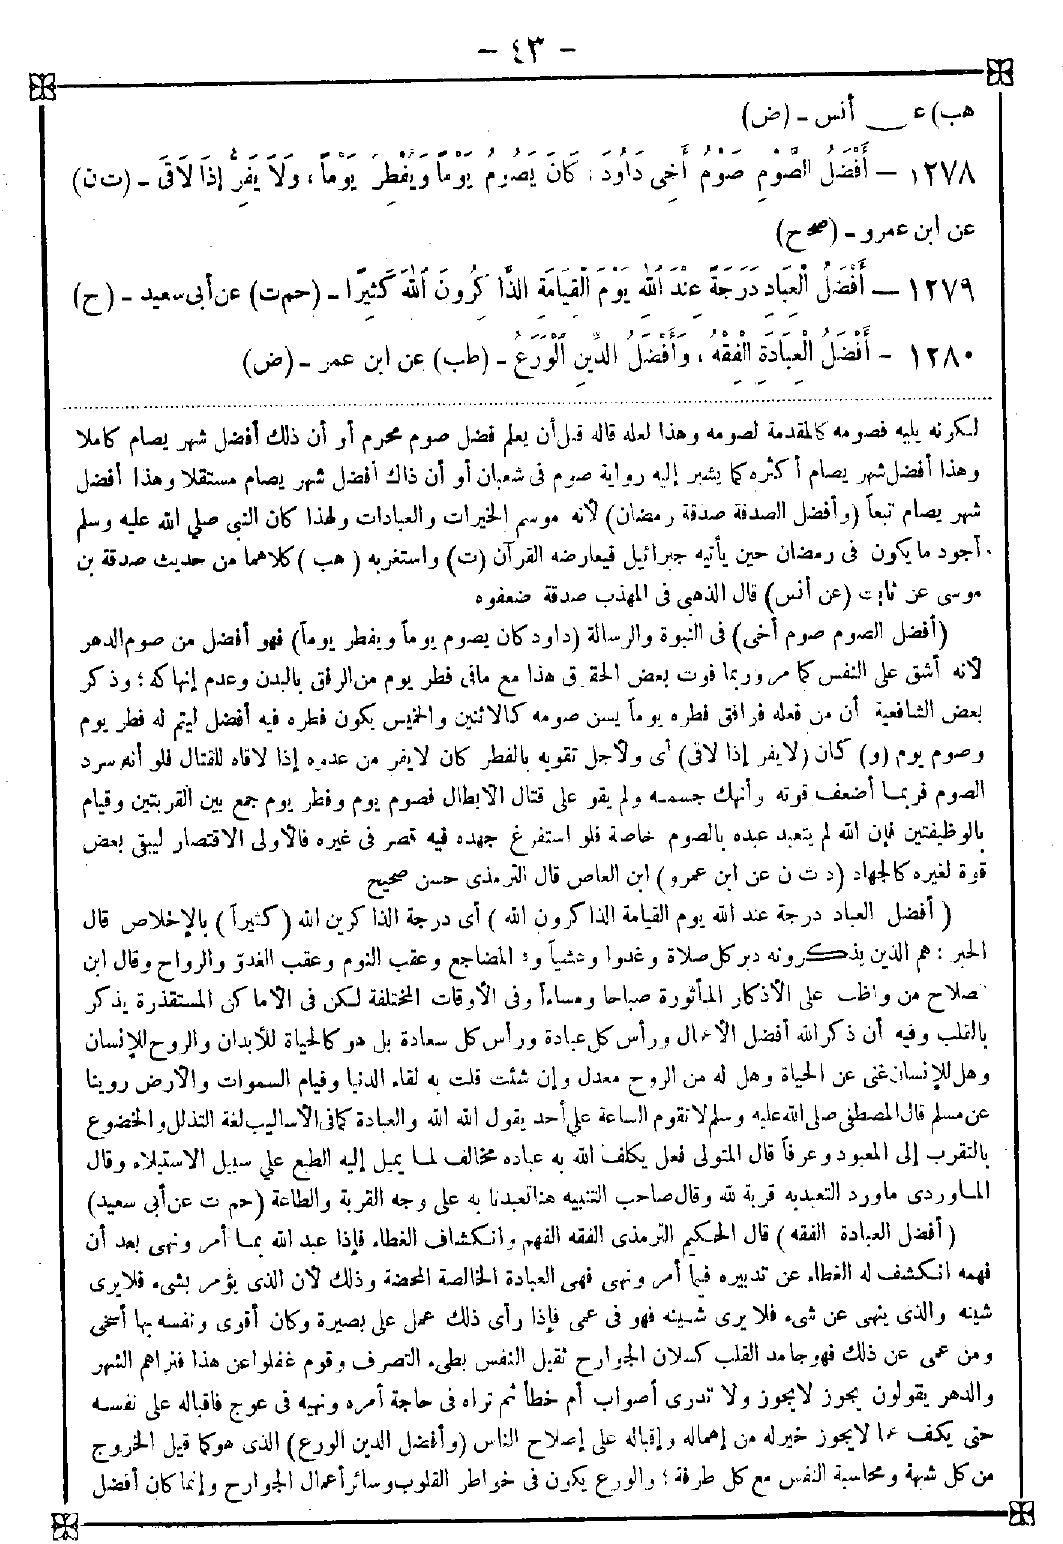 - ٤٣ -
هب) عـــ أنس - (ض)
١٢٧٨ - أَفْضَلُ الصَّوْمِ صَوْمُ أَخِى دَاوُدَ: كَانَ يَصُومُ يَوْمًا وَيُفْطِرُ يَوْمًا، وَلَا يَفِرُّ إِذَا لَاقَى - (ت ن)
عن ابن عمرو - (صح)
١٢٧٩ - أَفْضَلُ الْعِبَادِ دَرَجَةً عِنْدَ اللهِ يَوْمَ الْقِيَامَةِ الذَّاكِرُونَ اللهَ كَثِيرًا - (حم ت) عن أبى سعيد - (ح)
١٢٨٠ - أَفْضَلُ الْعِبَادَةِ الْفِقْهُ، وَأَفْضَلُ الدِّينِ الْوَرَعُ - (طب) عن ابن عمر - (ض)
لكونه يليه فصومه كالمقدمة لصومه وهذا لعله قاله قبل أن يعلم فضل صوم محرم أو أن ذلك أفضل شهر يصام كاملا
وهذا أفضل شهر يصام أكثره كما يشير إليه رواية صوم فى شعبان أو أن ذاك أفضل شهر يصام مستقلا وهذا أفضل
شهر يصام تبعاً (وأفضل الصدقة صدقة رمضان) لأنه موسم الخيرات والعبادات ولهذا كان النبى صلي الله عليه وسلم
أجود ما يكون فى رمضان حين يأتيه جبرائيل فيعارضه القرآن (ت) واستغربه (هب) كلاهما من حديث صدقة بن
موسى عن ثابت (عن أنس) قال الذهبى فى المهذب صدقة ضعفوه
(أفضل الصوم صوم أخى) فى النبوة والرسالة (داود كان يصوم يوماً ويفطر يوماً) فهو أفضل من صوم الدهر
لأنه أشق على النفس كما مر وربما فوت بعض الحقوق هذا مع مافى فطر يوم من الرفق بالبدن وعدم إنهاكه؛ وذكر
بعض الشافعية أن من فعله فرافق فطره يوماً يسن صومه كالاثنين والخميس يكون فطره فيه أفضل ليتم له فطر يوم
وصوم يوم (و) كان (لايفر إذا لاقى) أى ولأجل تقويه بالفطر كان لايفر من عدوه إذا لاقاه للقتال فلو أنه سرد
الصوم فربمـا أضعف قوته وأنهك جسمـه ولم يقو على قتال الأبطال فصوم يوم وفطر يوم جمع بين القربتين وقيام
بالوظيفتين فإن الله لم يتعبد عبده بالصوم خاصة فلو استفرغ جهده فيه قصر فى غيره فالأولى الاقتصار ليبقى بعض
قوة لغيره كالجهاد (د ت ن عن ابن عمرو) ابن العاص قال الترمذى حسن صحيح
( أفضل العباد درجة عند الله يوم القيامة الذاكرون الله ) أى درجة الذاكرين الله (كثيراً) بالإخلاص قال
الحبر: هم الذين يذكرونه دبر كل صلاة وغدوا وعشياً و المضاجع وعقب النوم وعقب الغدو والرواح وقال ابن
صلاح من واظب على الأذكار المأثورة صباحا ومساءاً وفى الأوقات المختلفة لكن فى الأماكن المستقذرة يذكر
بالقلب وفيه أن ذكر الله أفضل الأعمال ورأس كل عبادة ورأس كل سعادة بل هو كالحياة للأبدان والروح للإنسان
وهل للإنسان غنى عن الحياة وهل له من الروح معدل وإن شئت قلت به لقاء الدنيا وقيام السموات والأرض روينا
عن مسلم قال المصطفى صلى الله عليه وسلم لا تقوم الساعة علي أحد يقول الله الله والعبادة كما فى الأساليب لغة التذلل والخضوع
بالتقرب إلى المعبود وعرفاً قال المتولى فعل يكلف الله به عباده مخالف لمـا يميل إليه الطبع علي سبيل الابتلاء وقال
المـاوردى ماورد التعبد به قربة لله وقال صاحب التنبيه هنا تعبدنا به على وجه القربة والطاعة (حم ت عن أبى سعيد)
( أفضل العبادة الفقه ) قال الحكيم الترمذى الفقه الفهم وانكشاف الغطاء فإذا عبد الله بمـا أمر ونهى بعد أن
فهمه انكشف له الغطاء عن تدبيره فيما أمر ونهى فهى العبادة الخالصة المحضة وذلك لأن الذى يؤمر بشىء فلا يرى
شينه والذى ينهى عن شىء فلا يرى شينه فهو فى عمى فإذا رأى ذلك عمل على بصيرة وكان أقوى ونفسه بها أسخى
ومن عمى عن ذلك فهو جامد القلب كسلان الجوارح ثقيل النفس بطىء التصرف وقوم غفلوا عن هذا فتراهم الشهر
والدهر يقولون يجوز لا يجوز ولا تدرى أصواب أم خطأ ثم تراه فى حاجة أمره ونهيه فى عوج فاقباله على نفسـه
حتى يكف عما لا يجوز خير له من إهماله وإقباله على إصلاح الناس (وأفضل الدين الورع) الذى هو كما قيل الخروج
من كل شبهة ومحاسبة النفس مع كل طرفة؛ والورع يكون فى خواطر القلوب وسائر أعمال الجوارح وإنما كان أفضل